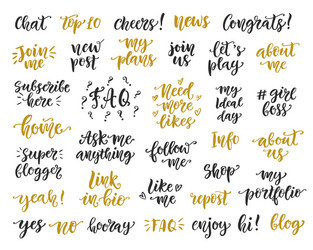 chat top 10 cheers! news Congrats!
Join me
new post
my plans
join us
let's play
about me
Subscribe here
? FAQ ?
Need more likes
my ideal day
# girl boss
home
Ask me anything
follow me
Info
about us
Super blogger
Link in bio
like me
Shop
my portfolio
yeah!
repost
yes no hooray FAQ enjoy hi! blog